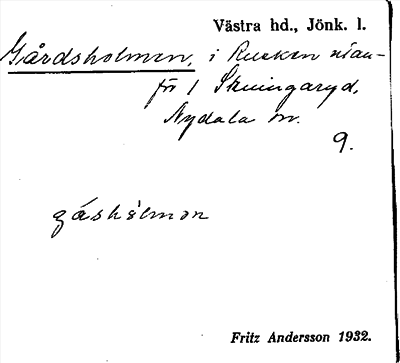 Västra hd., Jönk. l.
Gårdsholmen, i Rusken utan-
för 1 Skuingaryd,
Nydala sn.
9.
gásholmon
Fritz Andersson 1932.